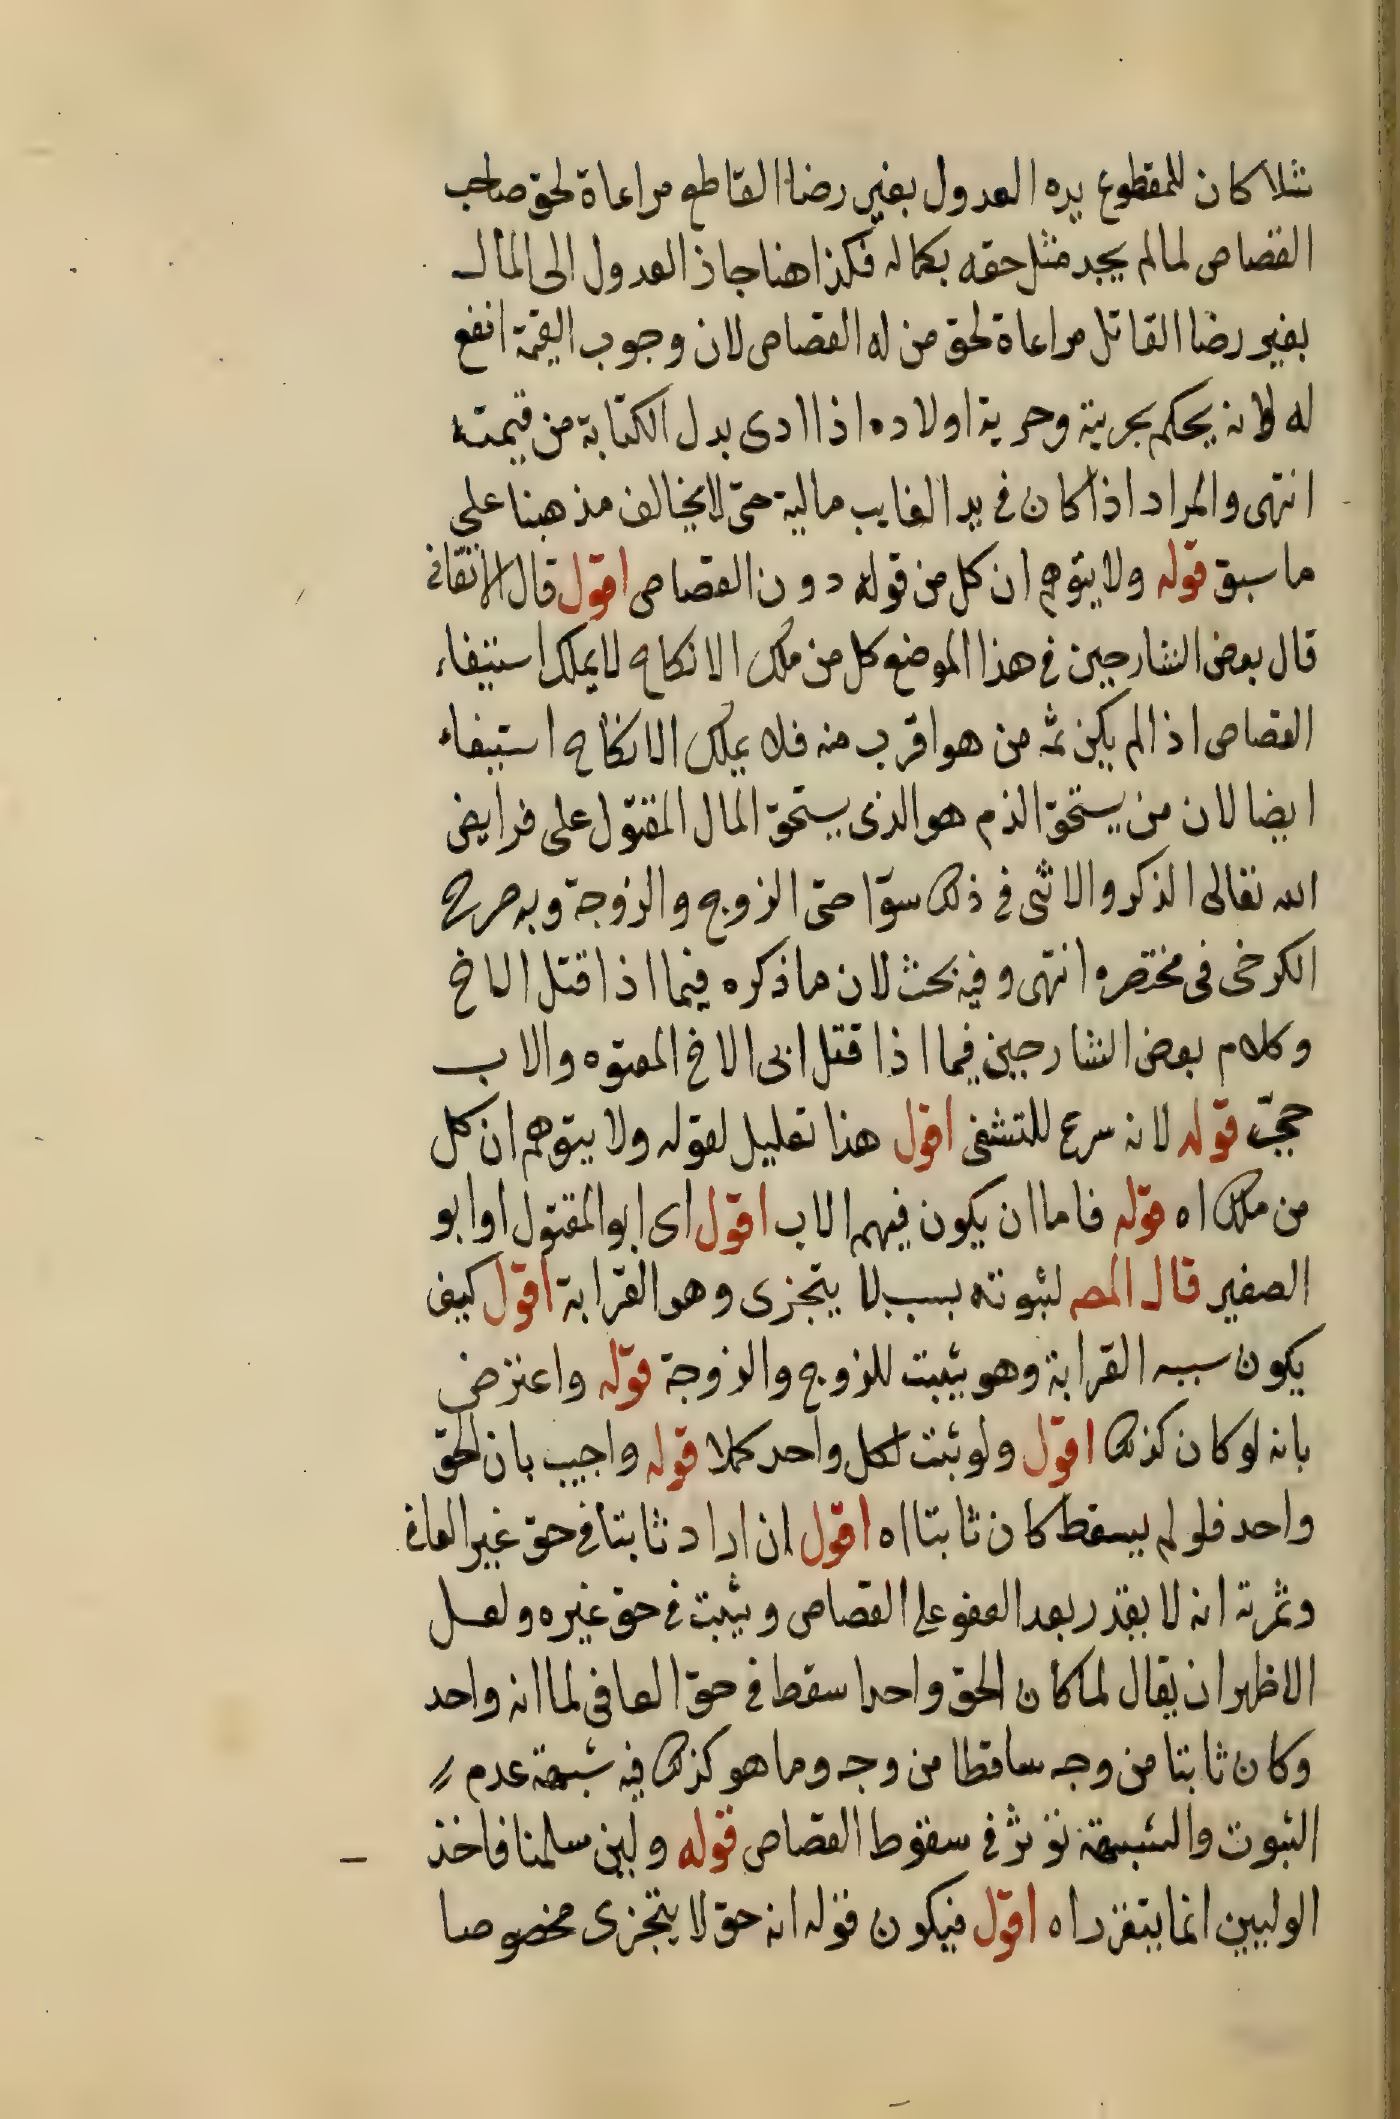 شلا كان للمقطوع يده العدول بغير رضا القاطع مراعاة لحق صاحب
القصاص لما لم يجد مثل حقه بكماله فكذا هنا جاز العدول الى المال
بغير رضا القاتل مراعاة لحق من له القصاص لان وجوب القيمة انفع
له لانه يحكم بحريته وحرية اولاده اذا ادى بدل الكتابة من قيمته
انتهى والمراد اذا كان في يد الغايب مالية حتى لا يخالف مذهبنا على
ما سبق قوله ولا يتوهم ان كل من قوله دون القصاص اقول قال الاتقاني
قال بعض الشارحين في هذا الموضع كل من ملك الانكاح لا يملك استيفاء
القصاص اذا لم يكن ثمه من هو اقرب منه فلا يملك الانكاح استيفاء
ايضا لان من يستحق الدم هو الذي يستحق المال المقتول على فرايض
الله تعالى الذكر والانثى في ذلك سوا حتى الزوج والزوجة وبه صرح
الكرخي في مختصره انتهى وفيه بحث لان ما ذكره فيما اذا قتل الاخ
وكلام بعض الشارحين فيما اذا قتل ابن الاخ المعتوه والاب
حي قوله لانه سرع للتشفى اقول هذا تعليل لقوله ولا يتوهم ان كل
من ملك اه قوله فاما ان يكون فيهم الاب اقول اى ابو المقتول او ابو
الصغير قال المص لثبوته بسبب لا يتجزى وهو القرابة اقول كيف
يكون سببه القرابة وهو يثبت للزوج والزوجة قوله واعترض
بانه لو كان كذلك اقول ولو ثبت لكل واحد كملا قوله واجيب بان الحق
واحد فلو لم يسقط كان ثابتا اه اقول ان اراد ثابتا في حق غير العافي
وثمرته انه لا يقدر بعد العفو على القصاص ويثبت في حق غيره ولعل
الاظهر ان يقال لما كان الحق واحدا سقط في حق العافى لما انه واحد
وكان ثابتا من وجه ساقطا من وجه وما هو كذلك فيه شبهة عدم
الثبوت والشبهة تؤثر في سقوط القصاص قوله ولين سلمنا فاخذ
الوليين انما يتفرد اه اقول فيكون قوله انه حق لا يتجزى مخصوصا